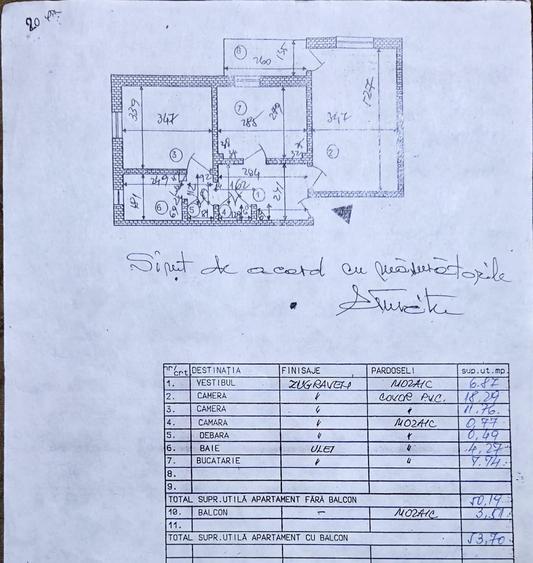 8
260
135
339
347
3
7
288
299
527
347
2
284
1
241
162
249
181
6
5
4
Sînt de acord cu măsurătorile
nr/crt DESTINAŢIA FINISAJE PARDOSELI sup.ut.mp.
1. VESTIBUL ZUGRAVELI MOZAIC 6.87
2. CAMERA " COVOR PVC. 18,29
3. CAMERA " " 11.76
4. CAMARA " MOZAIC 0,77
5. DEBARA " " 0,49
6. BAIE ULEI " 4,27
7. BUCATARIE " "
8.
9.
TOTAL SUPR.UTILĂ APARTAMENT FĂRĂ BALCON 50,19
10. BALCON — MOZAIC 3,51
11.
TOTAL SUPR.UTILĂ APARTAMENT CU BALCON 53,70